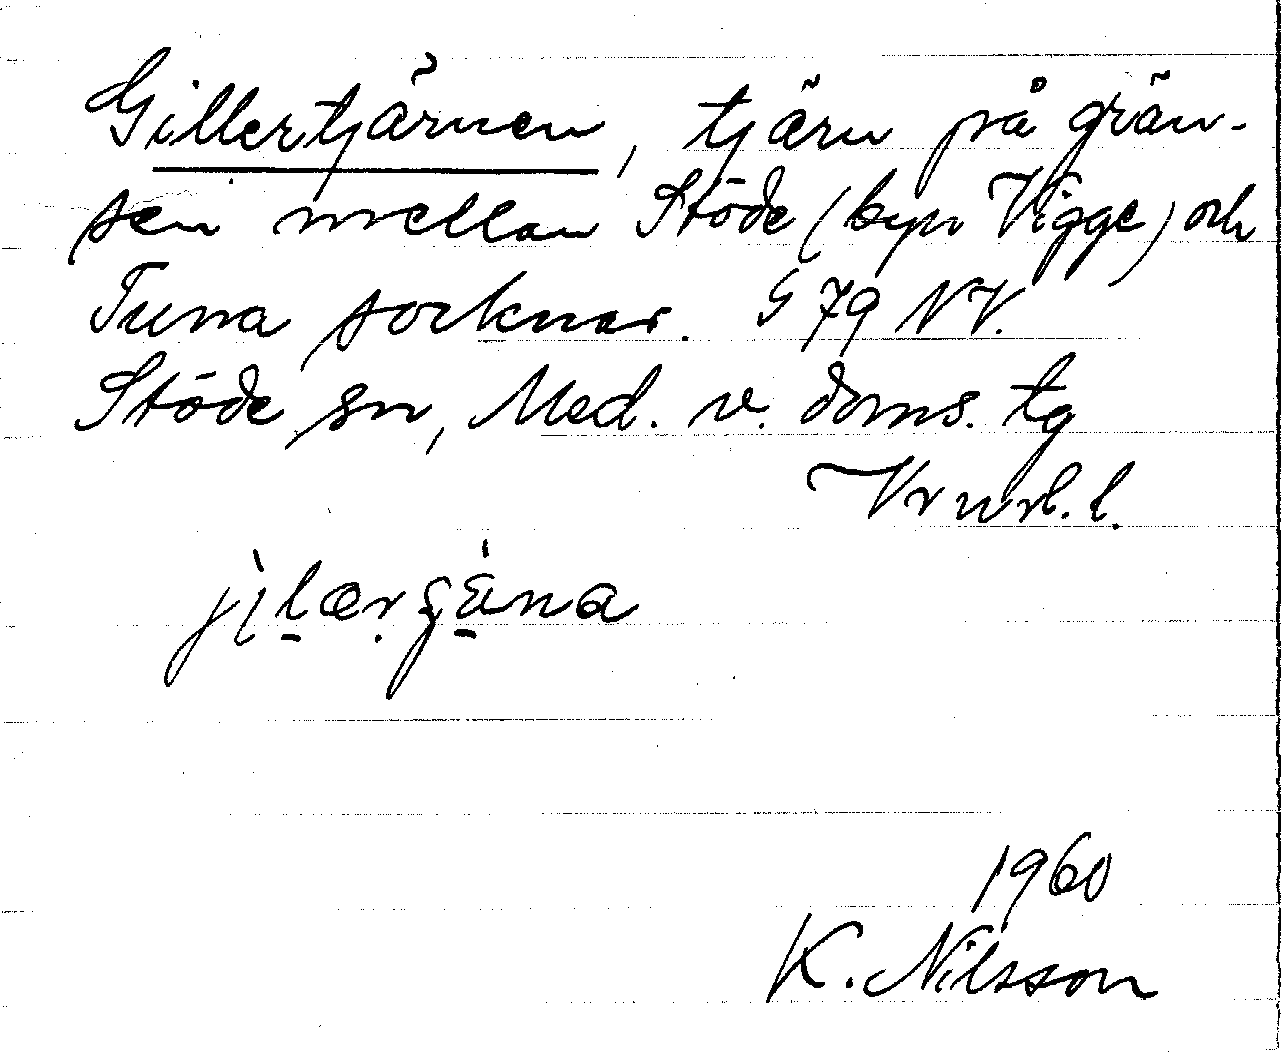 Gillertjärnen, tjärn på grän-
sen mellan Stöde (byn Vigge) och
Tuna socknar. G 79 NV.
Stöde sn, Med. v. doms. tg
Vrnrl. l.
1960
K. Nilsson